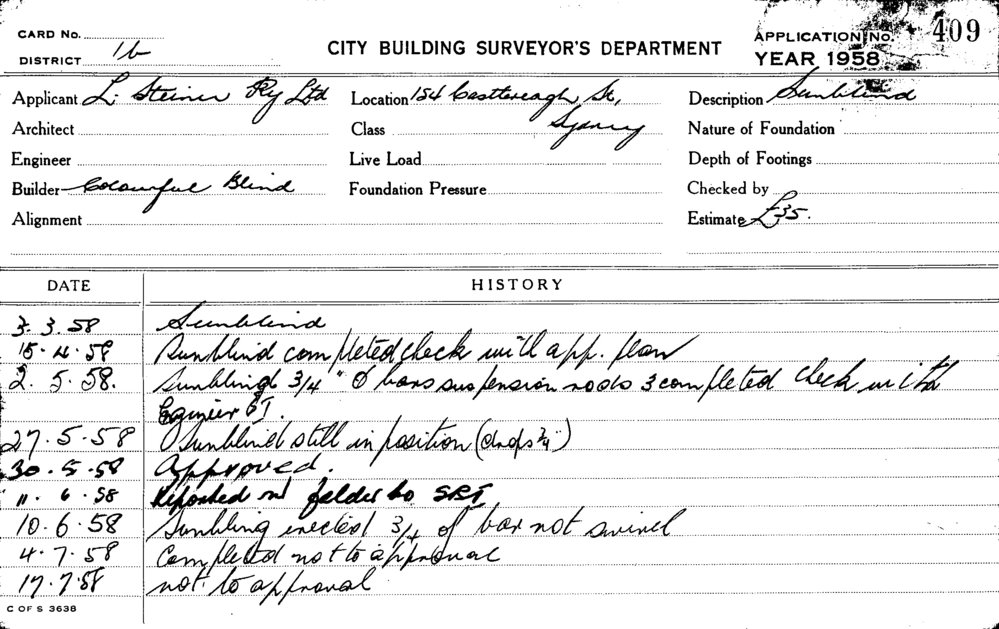 CARD No.
DISTRICT 1b
CITY BUILDING SURVEYOR'S DEPARTMENT
APPLICATION No. 409
YEAR 1958
Applicant L. Steiner Pty Ltd
Location 154 Castlereagh St,
Sydney
Description Sunblind
Architect
Class
Nature of Foundation
Engineer
Live Load
Depth of Footings
Builder Colourful Blind
Foundation Pressure
Checked by
Alignment
Estimate £35.
DATE HISTORY
3. 3. 58 Sunblind
15. 4. 58 Sunblind completed check with app. plan
2. 5. 58. Sunblind 3/4" bars suspension rods 3 completed check with
Engineer
27. 5. 58 Sunblind still in position
30. 5. 58 Approved.
11. 6. 58 Reported folder to
10. 6. 58 Sunbling erected 3/4 of bar not swivel
4. 7. 58 Completed not to approval
17. 7. 58 not to approval
C OF S 3638